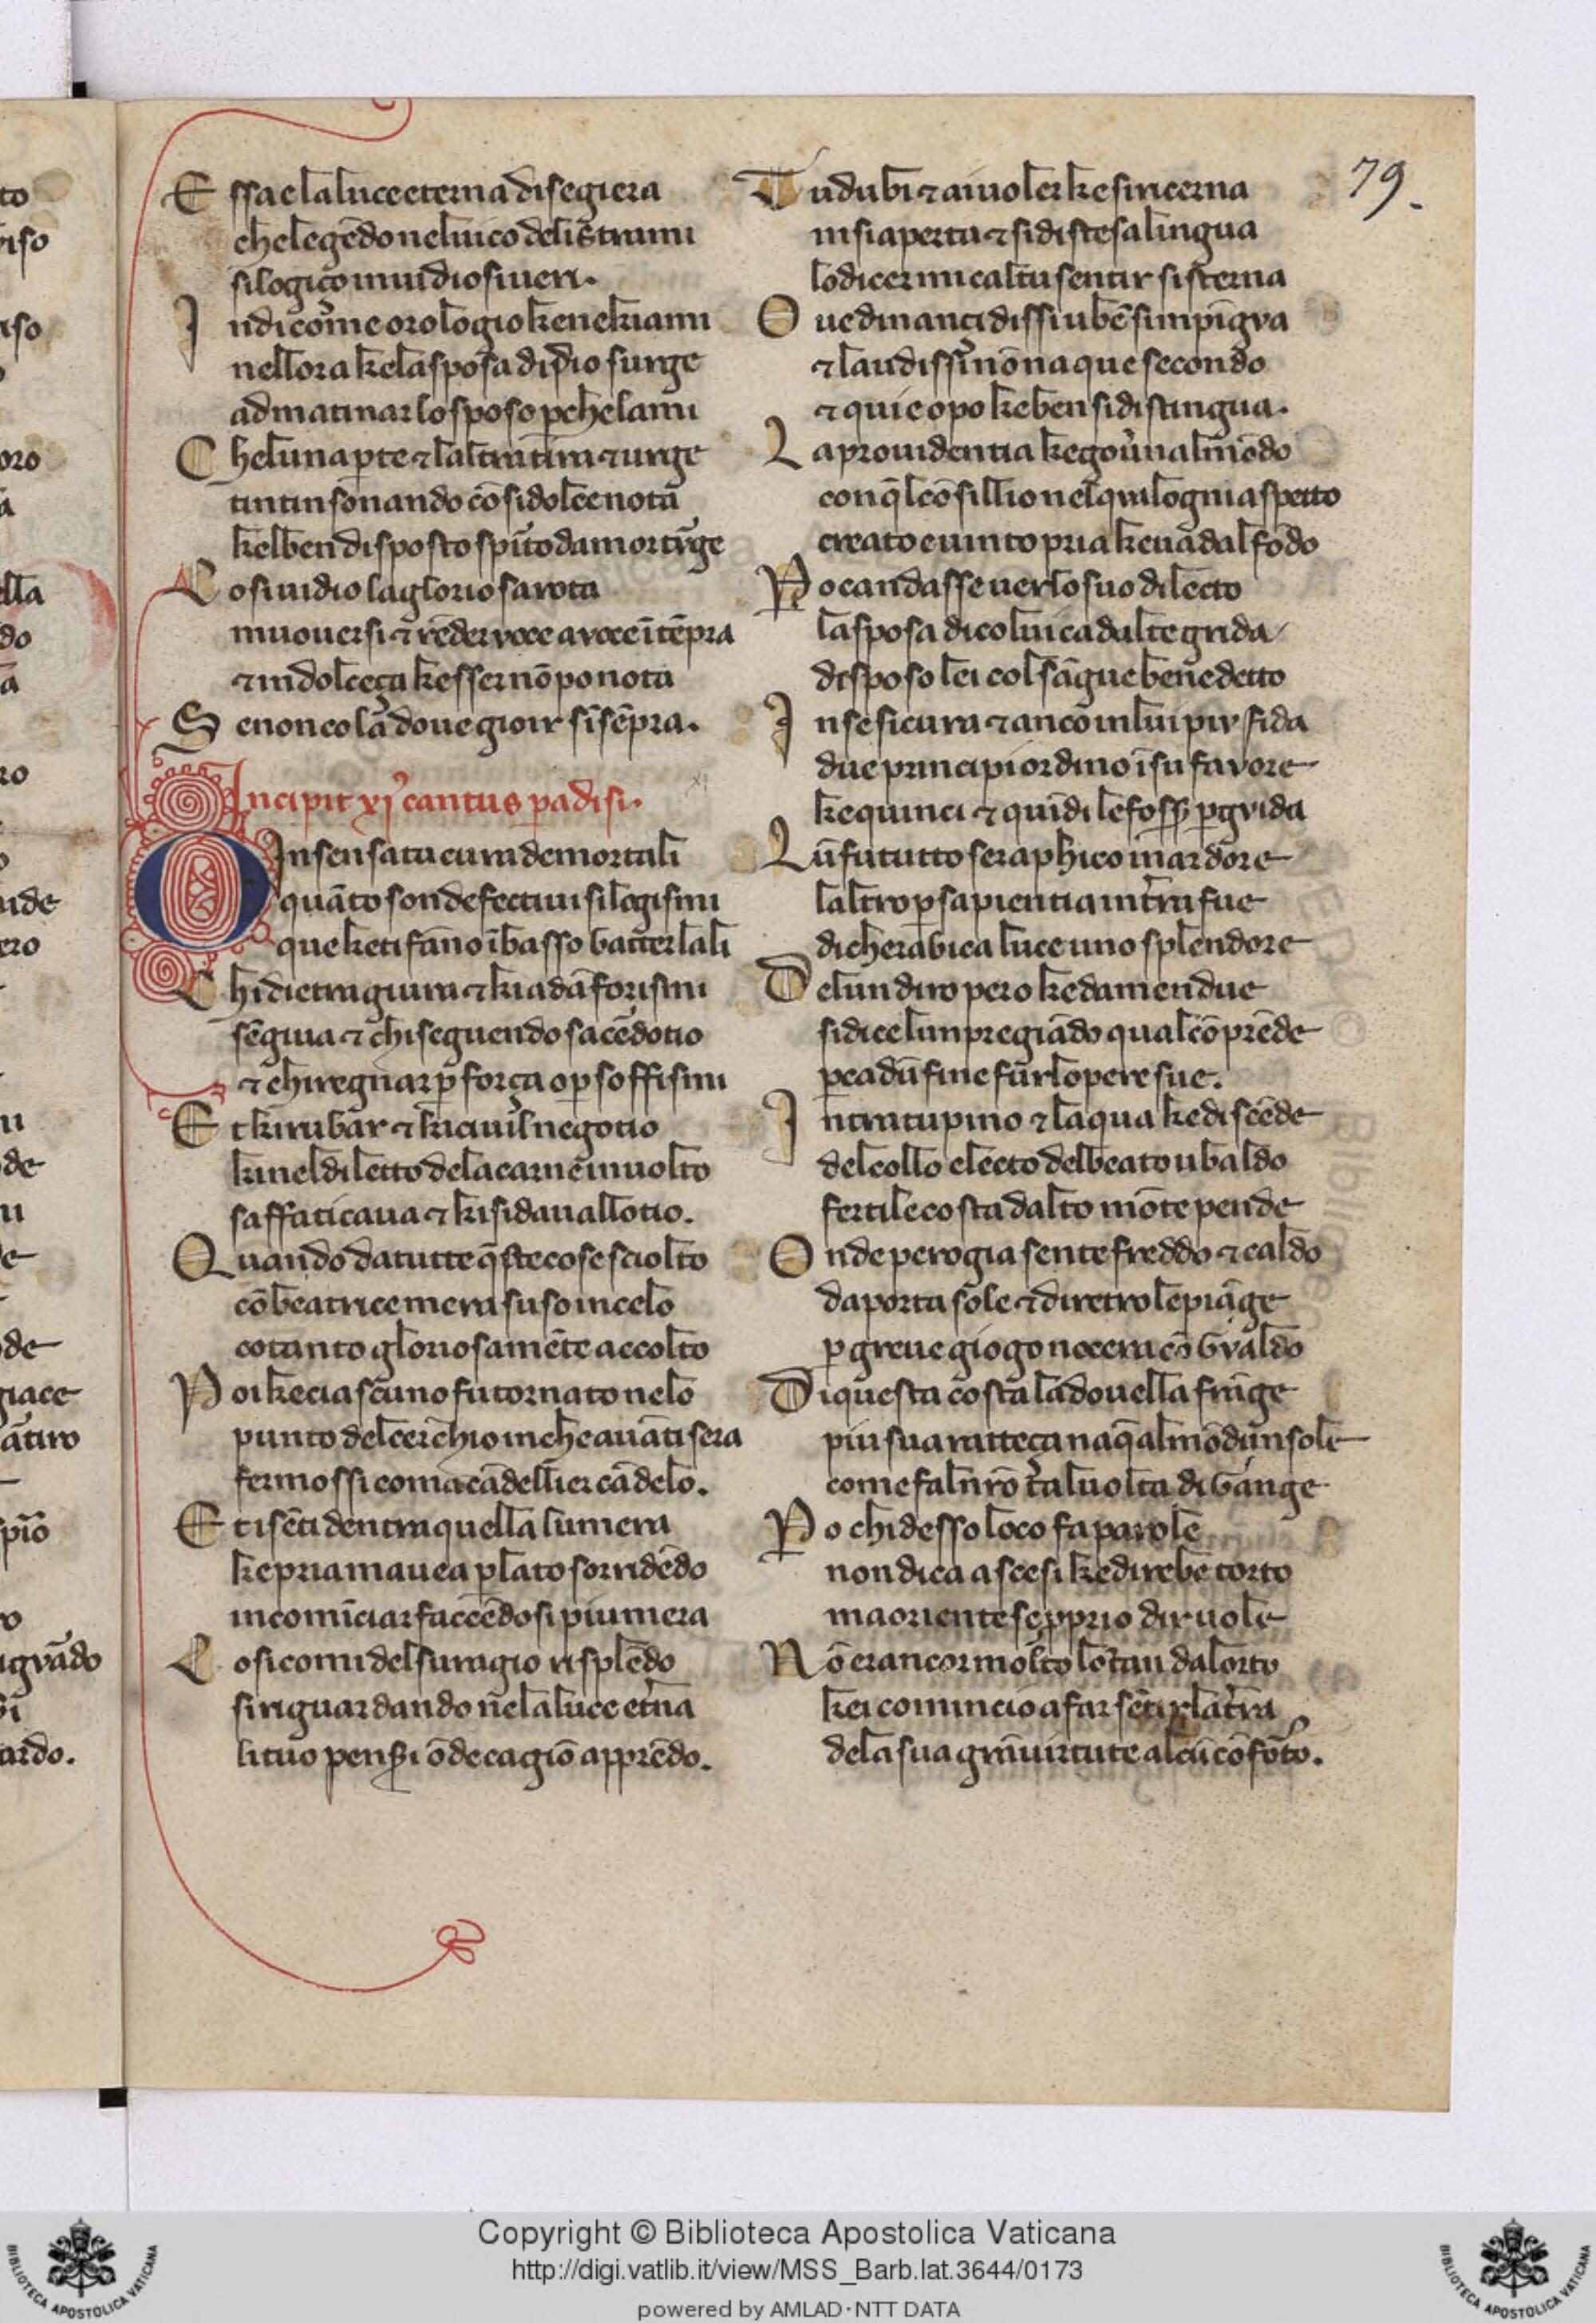 E ssae la luce eterna di segiera
che legēdo nel uico deli strami
silogiço inuidiosi ueri.
I ndi come orologio ke ne kiami
nellora ke la sposa di dio surge
ad matinar lo sposo p̄che lami
C he luna p̱te ⁊ laltra tira ⁊ urge
tintin sonando cō si dolce nota
kel ben disposto sp̄ito damor turge
C osi uidio la gloriosa rota
muouersi ⁊ rēder voce a voce ī tēpra
⁊ in dolceça kesser nō po nota
S e non cola doue gioir sīsēpra.
Incipit xj cantus padisi.
O Insensata cura de mortali
quāto son defectiui silogismi
que ke ti fāno ī basso batter lali
C hi dietra giura ⁊ ki ad āforismi
sēgiua ⁊ chi seguendo sacēdotio
⁊ chi regnar p̱ força o p̱ soffismi
E t ki rubar ⁊ ki ciuil negotio
ki nel diletto dela carne inuolto
saffaticaua ⁊ ki si daua allotio.
Q uando da tutte q̄ste cose sciolto
cō beatrice mera suso in celo
cotanto gloriosamēte accolto
P oi ke ciascuno fu tornato nelo
punto del cerchio in che auāti sera
fermossi com a cādellier cādelo.
E t i sēti dentra quella lumera
ke pria mauea p̱lato sorridēdo
incomīciar faccēdosi piu mera
C osi comi del su ragio risplēdo
si riguardando nela luce etn̄a
li tuo pensi ōde cagiō apprēdo.
T u dubi ⁊ ai uoler ke si ricerna
in si aperta ⁊ si distesa lingua
lo dicer mi cal tu sentir si sterna
O ue dinanci dissi u bē simpīgva
⁊ la u dissi nō naque secondo
⁊ qui e opo ke ben si distingua.
L a prouidentia ke gou̇na lmōdo
con q̄l cōsillio nel qual ogni aspetto
creato e uinto pria ke uada al fōdo
P o candasse uer lo suo dilecto
la sposa di colui cad alte grida
disposo lei col sāgue benedetto
I n se sicura ⁊ ancō in lui piv fida
due principi ordino ī su favore
ke quinci ⁊ quīdi le fosṣ p̱ gvida
L ū fu tutto seraphico in ardore
laltro p̱ sapientia in tr̄a fue
di cherabica luce uno splendore
D e lun diro pero ke damendue
si dice lun pregiādo qual cō prēde
p̱ceadū fine fūr lopere sue.
I ntra tupino ⁊ laqua ke discēde
del collo electo del beato ubaldo
fertile costa dalto mōte pende
O nde perogia sente freddo ⁊ caldo
da porta sole ⁊ diretro le piāge
p̱ greue giogo nocera cō Gvaldo
D i questa costa la dou ella frāge
piu sua ratteça naq̄ al mōdū sole
come fa lnr̄o tal uolta di Gange
P o chi desso loco fa parole
non dica ascesi ke direbe corto
ma oriente se p̱prio dir uole
N ō eran cor molto lōtan dalorto
kei comincio a far sētir la tr̄a
dela sua grā uirtute alcū cōforto.
79.
Copyright © Biblioteca Apostolica Vaticana
http://digi.vatlib.it/view/MSS_Barb.lat.3644/0173
powered by AMLAD·NTT DATA
BIBLIOTECA APOSTOLICA VATICANA
BIBLIOTECA APOSTOLICA VATICANA